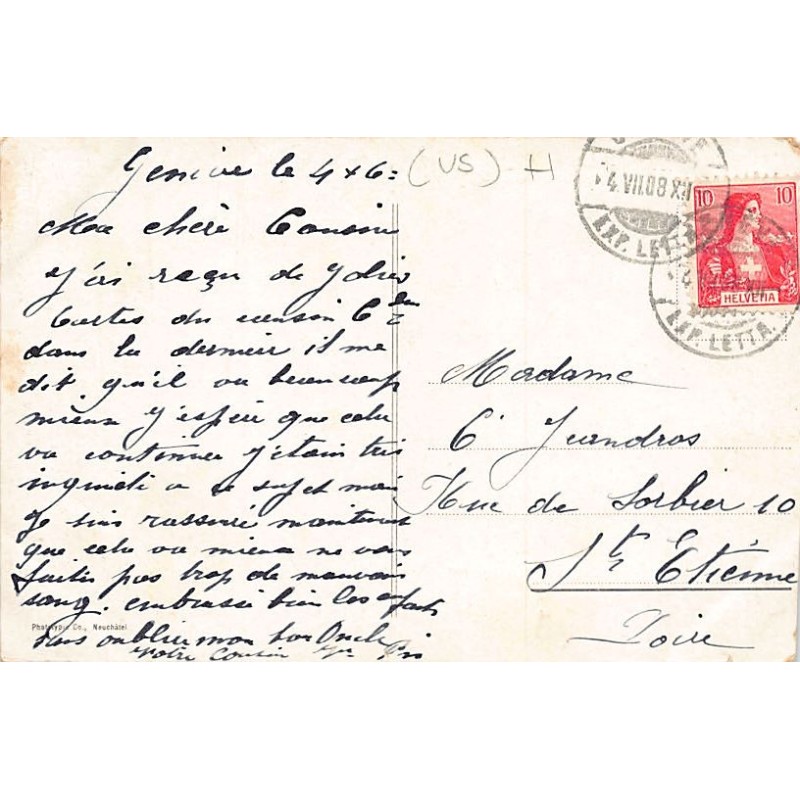 Genève le 4 × 6 =
(US) H
Ma chère Cousine
J'ai reçu de jolies
Cartes du cousin C
dans la dernier il me
dit qu'il va beaucoup
mieux j'espère que cela
va continuer j'étain très
inquiet a ce sujet mais
Je suis rassuré maintenant
que cela va mieux ne vous
faites pas trop de mauvais
sang. embrassé bien les enfants
sans oublier mon bon Oncle
Votre Cousin
Phototypie Co., Neuchâtel
4 VII.08 XI
EXP. LETTR.
10 10
HELVETIA
EXP. LETTR.
Madame
C Jeandros
Rue de Sorbier 10
St Etienne
Loire